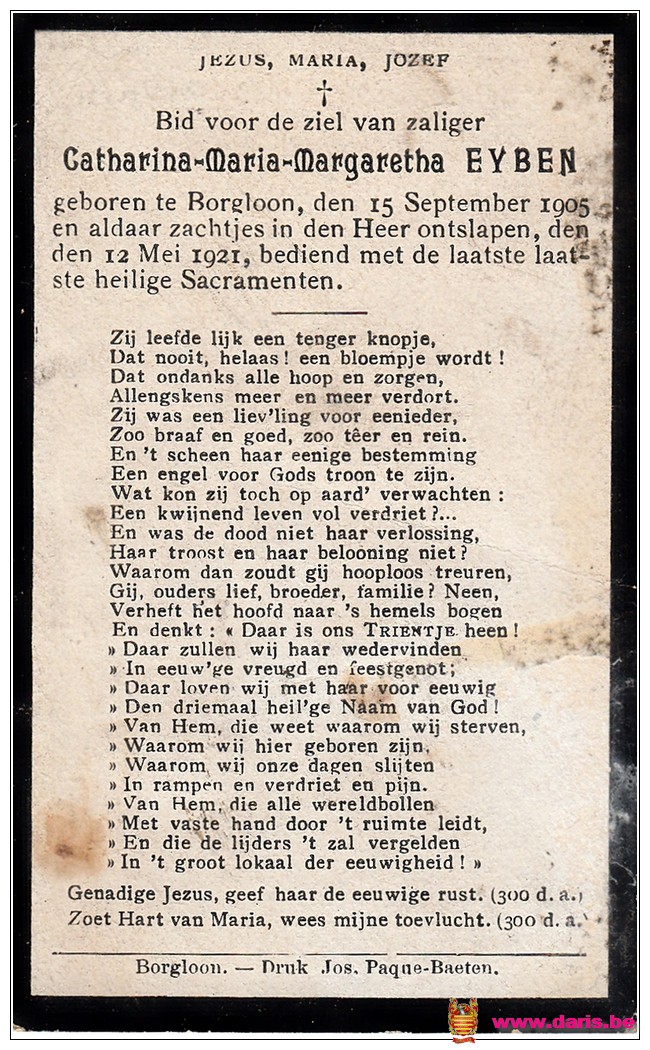 JEZUS, MARIA, JOZEF
†
Bid voor de ziel van zaliger
Catharina-Maria-Margaretha EYBEN
geboren te Borgloon, den 15 September 1905
en aldaar zachtjes in den Heer ontslapen, den
den 12 Mei 1921, bediend met de laatste laat-
ste heilige Sacramenten.
Zij leefde lijk een tenger knopje,
Dat nooit, helaas! een bloempje wordt!
Dat ondanks alle hoop en zorgen,
Allengskens meer en meer verdort.
Zij was een liev'ling voor eenieder,
Zoo braaf en goed, zoo têer en rein.
En 't scheen haar eenige bestemming
Een engel voor Gods troon te zijn.
Wat kon zij toch op aard' verwachten :
Een kwijnend leven vol verdriet?...
En was de dood niet haar verlossing,
Haar troost en haar belooning niet?
Waarom dan zoudt gij hooploos treuren,
Gij, ouders lief, broeder, familie? Neen,
Verheft het hoofd naar 's hemels bogen
En denkt : « Daar is ons TRIENTJE heen!
» Daar zullen wij haar wedervinden
» In eeuw'ge vreugd en feestgenot;
» Daar loven wij met haar voor eeuwig
» Den driemaal heil'ge Naam van God!
» Van Hem, die weet waarom wij sterven,
» Waarom wij hier geboren zijn,
» Waarom wij onze dagen slijten
» In rampen en verdriet en pijn.
» Van Hem, die alle wereldbollen
» Met vaste hand door 't ruimte leidt,
» En die de lijders 't zal vergelden
» In 't groot lokaal der eeuwigheid! »
Genadige Jezus, geef haar de eeuwige rust. (300 d. a.)
Zoet Hart van Maria, wees mijne toevlucht. (300 d. a.)
Borgloon. — Druk Jos. Paque-Baeten.
www.daris.be